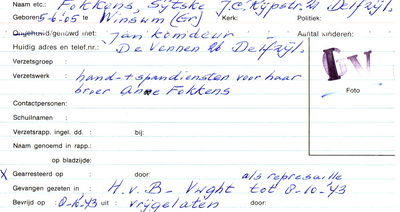 Naam etc.: Fokkens, Sytske J.C. Kypstr. 21, Delfzijl
Geboren: 5-6-05 te Winsum (Gr) Kerk: Politiek:
Ongehuwd/gehuwd met: Jan Komdeur Aantal kinderen:
Huidig adres en telef.nr.: De Vennen 26 Delfzijl
Verzetsgroep :
Verzetswerk : hand- + spandiensten voor haar
broer Anne Fokkens
GV
Foto
Contactpersonen:
Schuilnamen :
Verzetsrapp. ingel. dd. : bij:
Naam genoemd in rapp.:
op bladzijde:
X Gearresteerd op : door: als represaille
Gevangen gezeten in : H.v.B - Vught tot 8-10-'43
Bevrijd op : 8-10-'43 uit : vrijgelaten door: